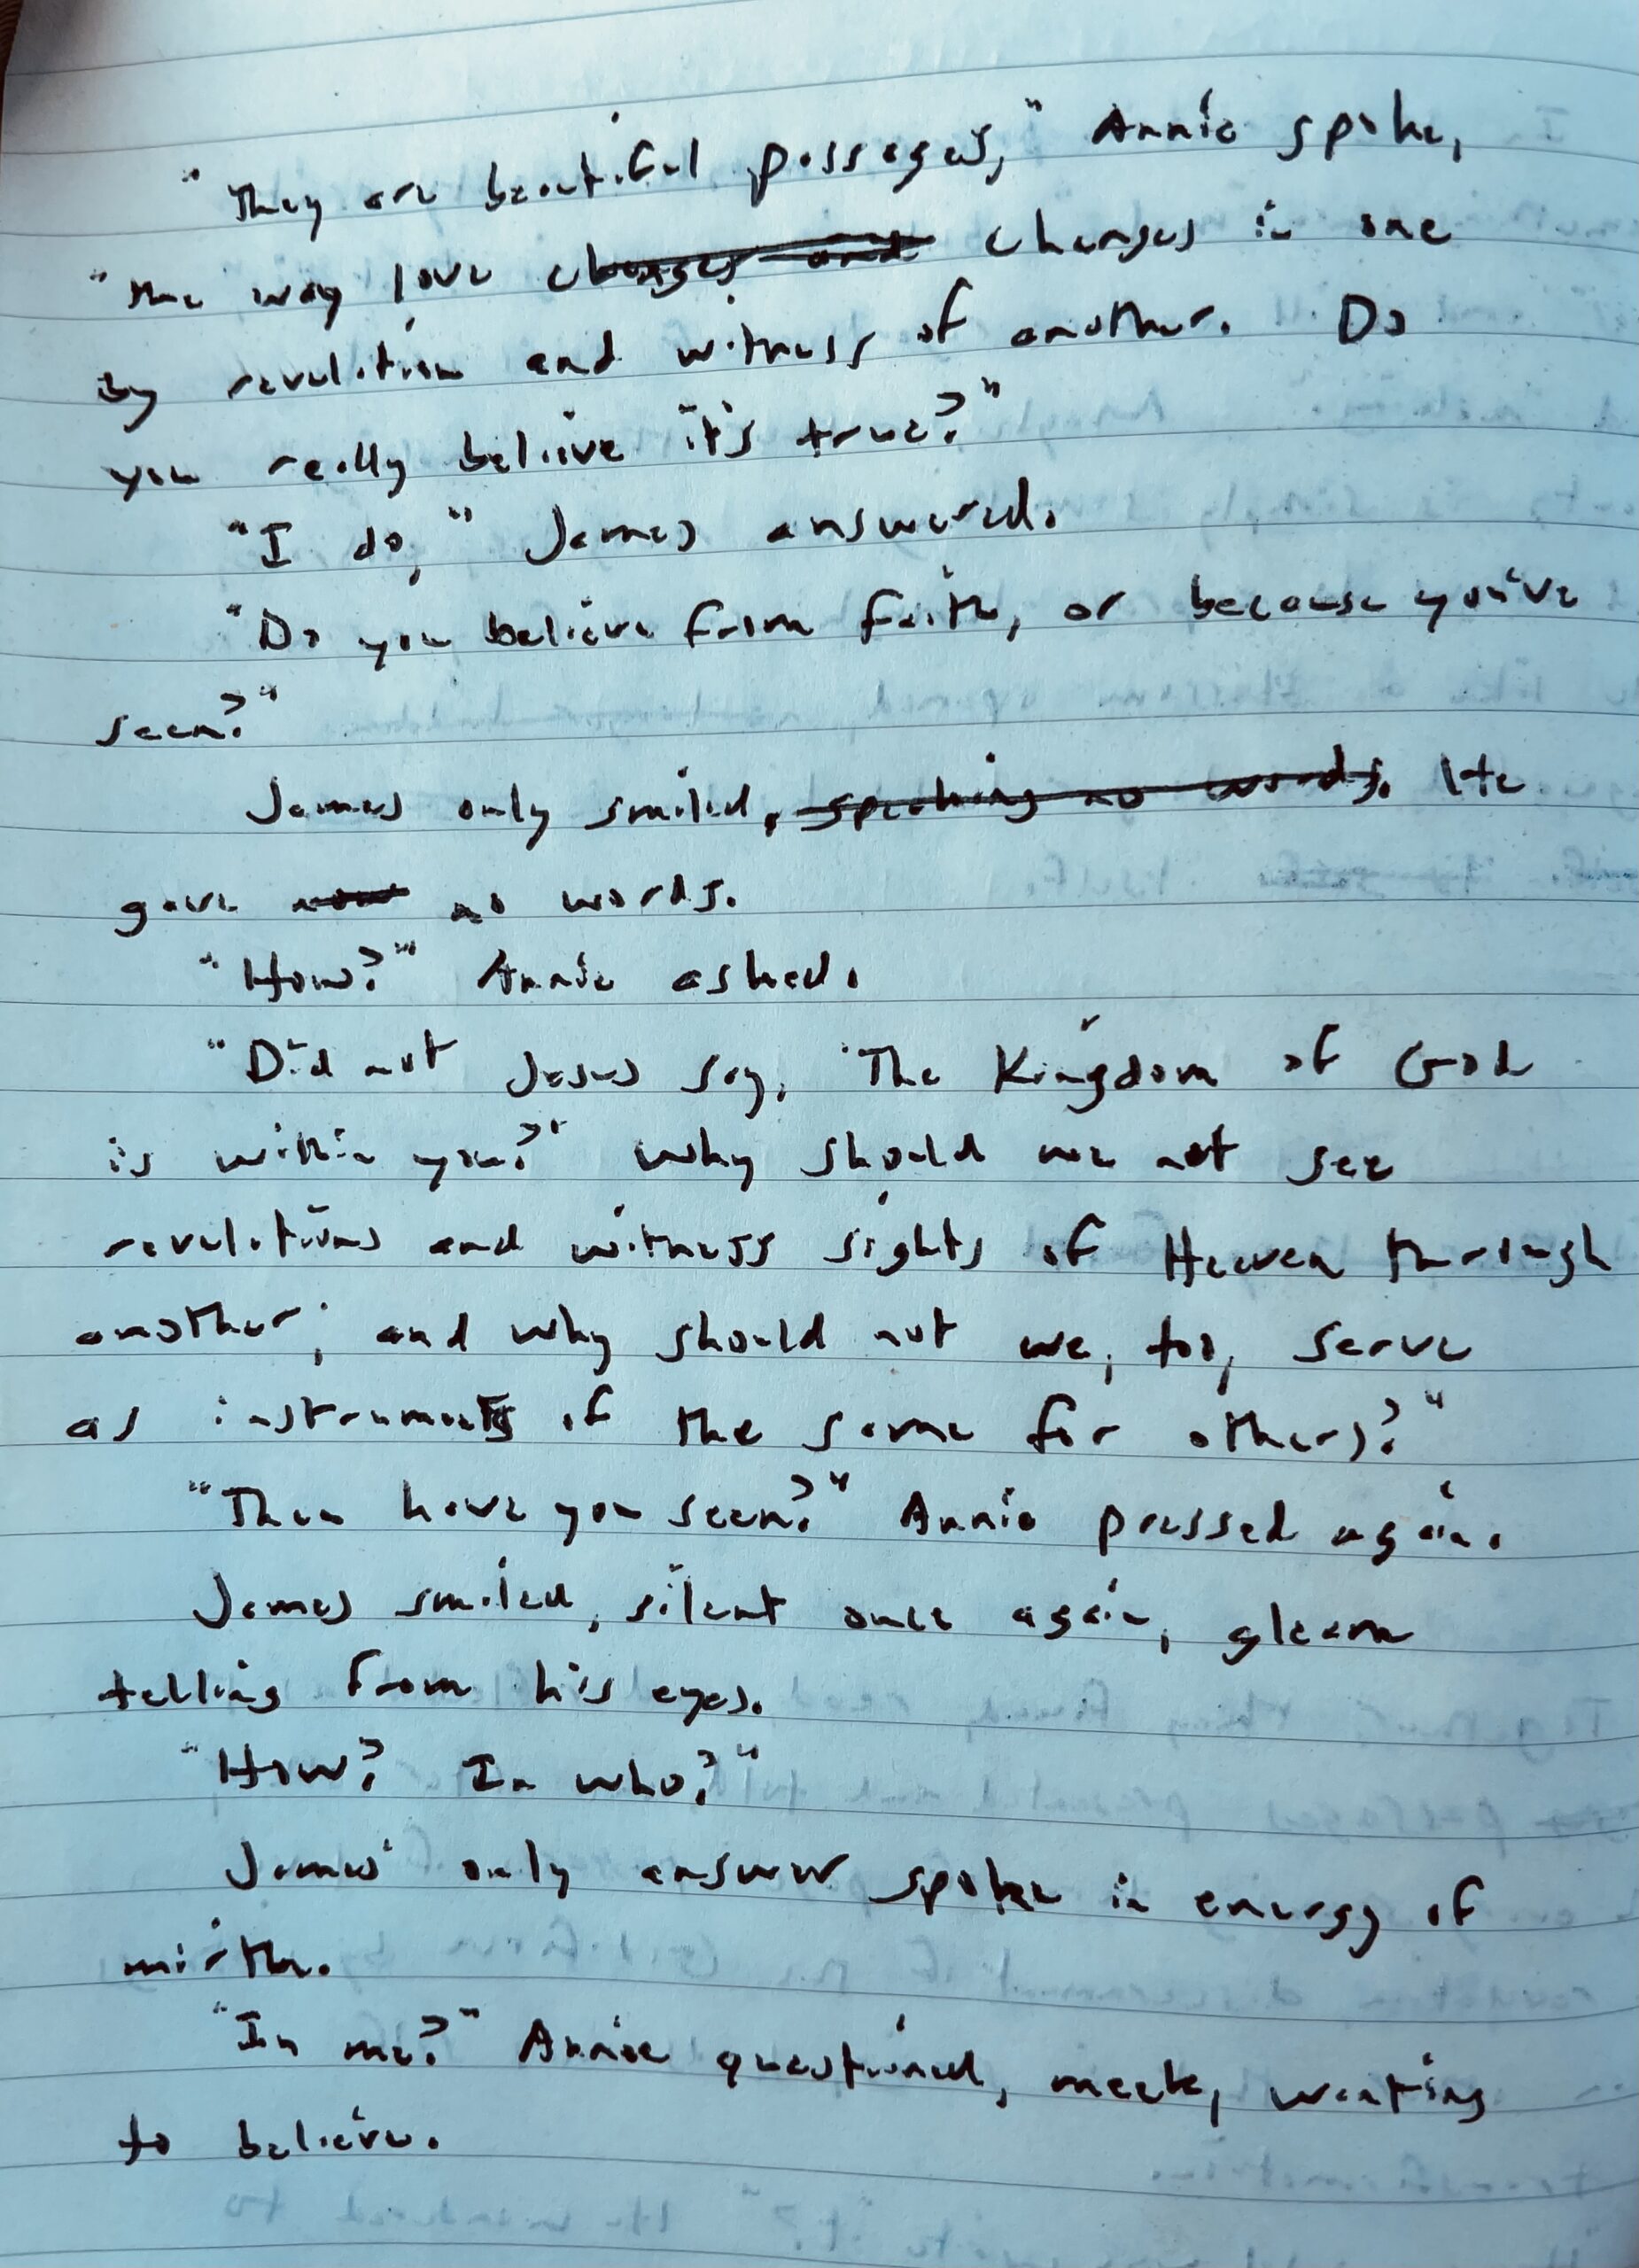 "They are beautiful passages," Annie spoke,
"the way love changes and changes in one
by revelation and witness of another. Do
you really believe it's true?"
"I do," James answered.
"Do you believe from faith, or because you've
seen?"
James only smiled, speaking no words. He
gave no words.
"How?" Annie asked.
"Did not Jesus say, 'The Kingdom of God
is within you?' Why should we not see
revelations and witness sights of Heaven through
another; and why should not we, too, serve
as instruments of the same for others?"
"Then have you seen?" Annie pressed again.
James smiled, silent once again, gleam
telling from his eyes.
"How? In who?"
James' only answer spoke in energy of
mirth.
"In me?" Annie questioned, meek, wanting
to believe.